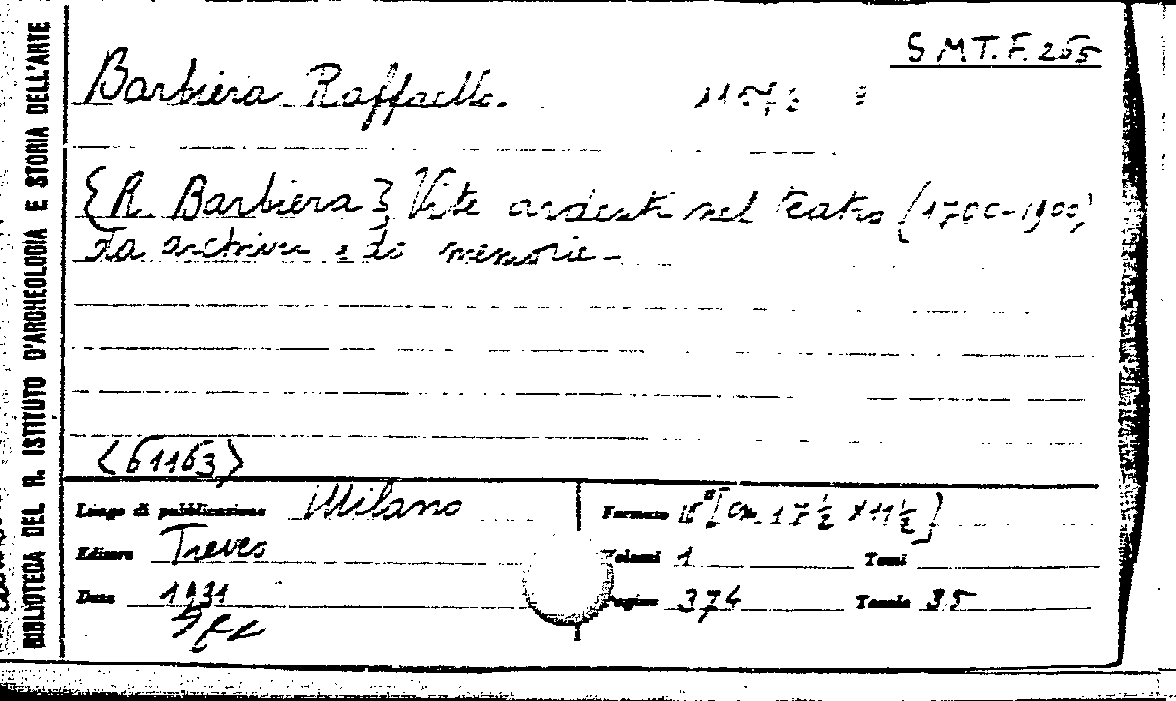 BIBLIOTECA DEL R. ISTITUTO D'ARCHEOLOGIA E STORIA DELL'ARTE
S.M.T.F. 265
Barbiera Raffaello.
{R. Barbiera} Vite ardenti nel teatro (1700-1900)
da archivi e da memorie -
<61163>
Luogo di pubblicazione Milano
Formato 16° [cm. 17 ½ x 11 ½]
Editore Treves
Volumi 1 Tomi
Data 1931
Pagine 374 Tavole 35